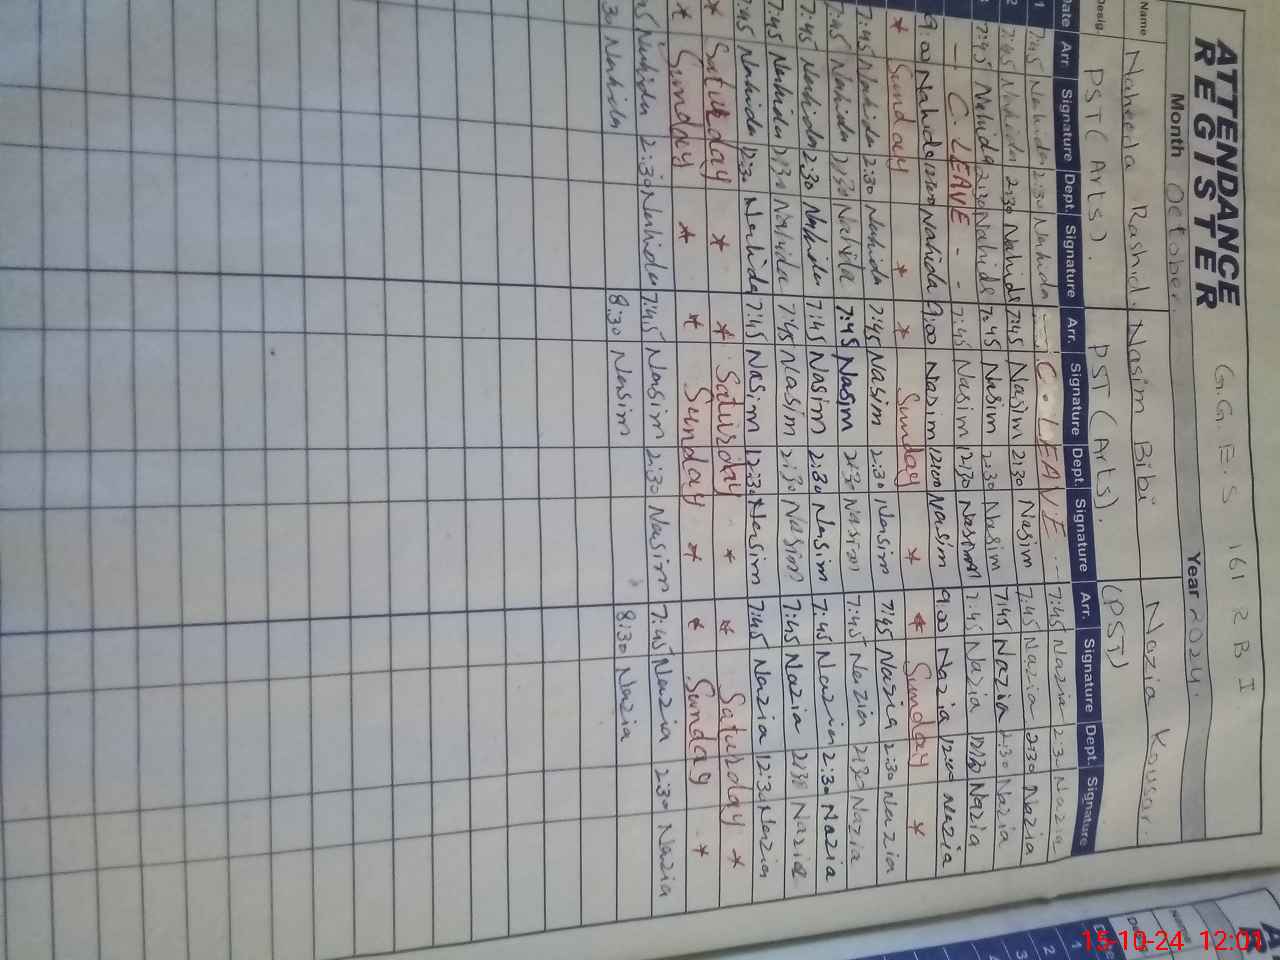 ATTENDANCE REGISTER
G.G.E.S 161 R B I
Month October Year 2024
Name Naheeda Rashid. Nasim Bibi Nazia Kousar.
Desig. PST (Arts). PST (Arts). (PST)
Date Arr. Signature Dept. Signature Arr. Signature Dept. Signature Arr. Signature Dept. Signature
1 7:45 Nahida 2:30 Nahida C. LEAVE 7:45 Nazia 2:30 Nazia
2 7:45 Nahida 2:30 Nahida 7:45 Nasim 2:30 Nasim 7:45 Nazia 2:30 Nazia
7:45 Nahida 2:30 Nahida 7:45 Nasim 2:30 Nasim 7:45 Nazia 2:30 Nazia
- C. LEAVE - - 7:45 Nasim 12:30 Nasim 7:45 Nazia 12:30 Nazia
9:00 Nahida 12:00 Nahida 9:00 Nasim 12:00 Nasim 9:00 Nazia 12:00 Nazia
* Sunday * * Sunday * * Sunday *
7:45 Nahida 2:30 Nahida 7:45 Nasim 2:30 Nasim 7:45 Nazia 2:30 Nazia
7:45 Nahida 2:30 Nahida 7:45 Nasim 2:30 Nasim 7:45 Nazia 2:30 Nazia
7:45 Nahida 2:30 Nahida 7:45 Nasim 2:30 Nasim 7:45 Nazia 2:30 Nazia
7:45 Nahida 2:30 Nahida 7:45 Nasim 2:30 Nasim 7:45 Nazia 2:30 Nazia
7:45 Nahida 12:30 Nahida 7:45 Nasim 12:30 Nasim 7:45 Nazia 12:30 Nazia
* Saturday * * Saturday * * Saturday *
* Sunday * * Sunday * * Sunday *
Nahida 2:30 Nahida 7:45 Nasim 2:30 Nasim 7:45 Nazia 2:30 Nazia
:30 Nahida 8:30 Nasim 8:30 Nazia
15-10-24 12:01